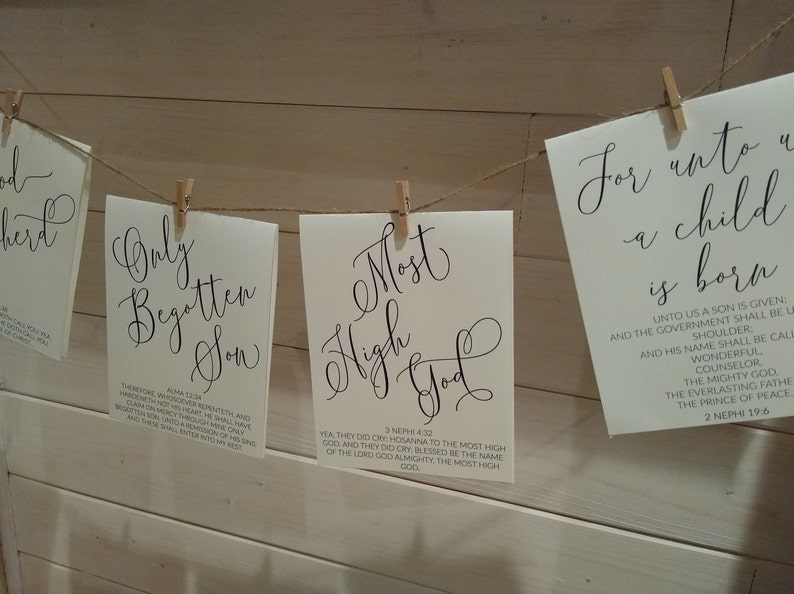 herd
DOTH CALL YOU; YEA,
DOTH CALL YOU,
OF CHRIST
Only
Begotten
Son
ALMA 12:34
THEREFORE, WHOSOEVER REPENTETH, AND
HARDENETH NOT HIS HEART, HE SHALL HAVE
CLAIM ON MERCY THROUGH MINE ONLY
BEGOTTEN SON, UNTO A REMISSION OF HIS SINS;
AND THESE SHALL ENTER INTO MY REST
Most
High
God
3 NEPHI 4:32
YEA, THEY DID CRY: HOSANNA TO THE MOST HIGH
GOD. AND THEY DID CRY: BLESSED BE THE NAME
OF THE LORD GOD ALMIGHTY, THE MOST HIGH
GOD.
For unto u
a child
is born
UNTO US A SON IS GIVEN;
AND THE GOVERNMENT SHALL BE U
SHOULDER;
AND HIS NAME SHALL BE CALL
WONDERFUL,
COUNSELOR,
THE MIGHTY GOD,
THE EVERLASTING FATHE
THE PRINCE OF PEACE.
2 NEPHI 19:6